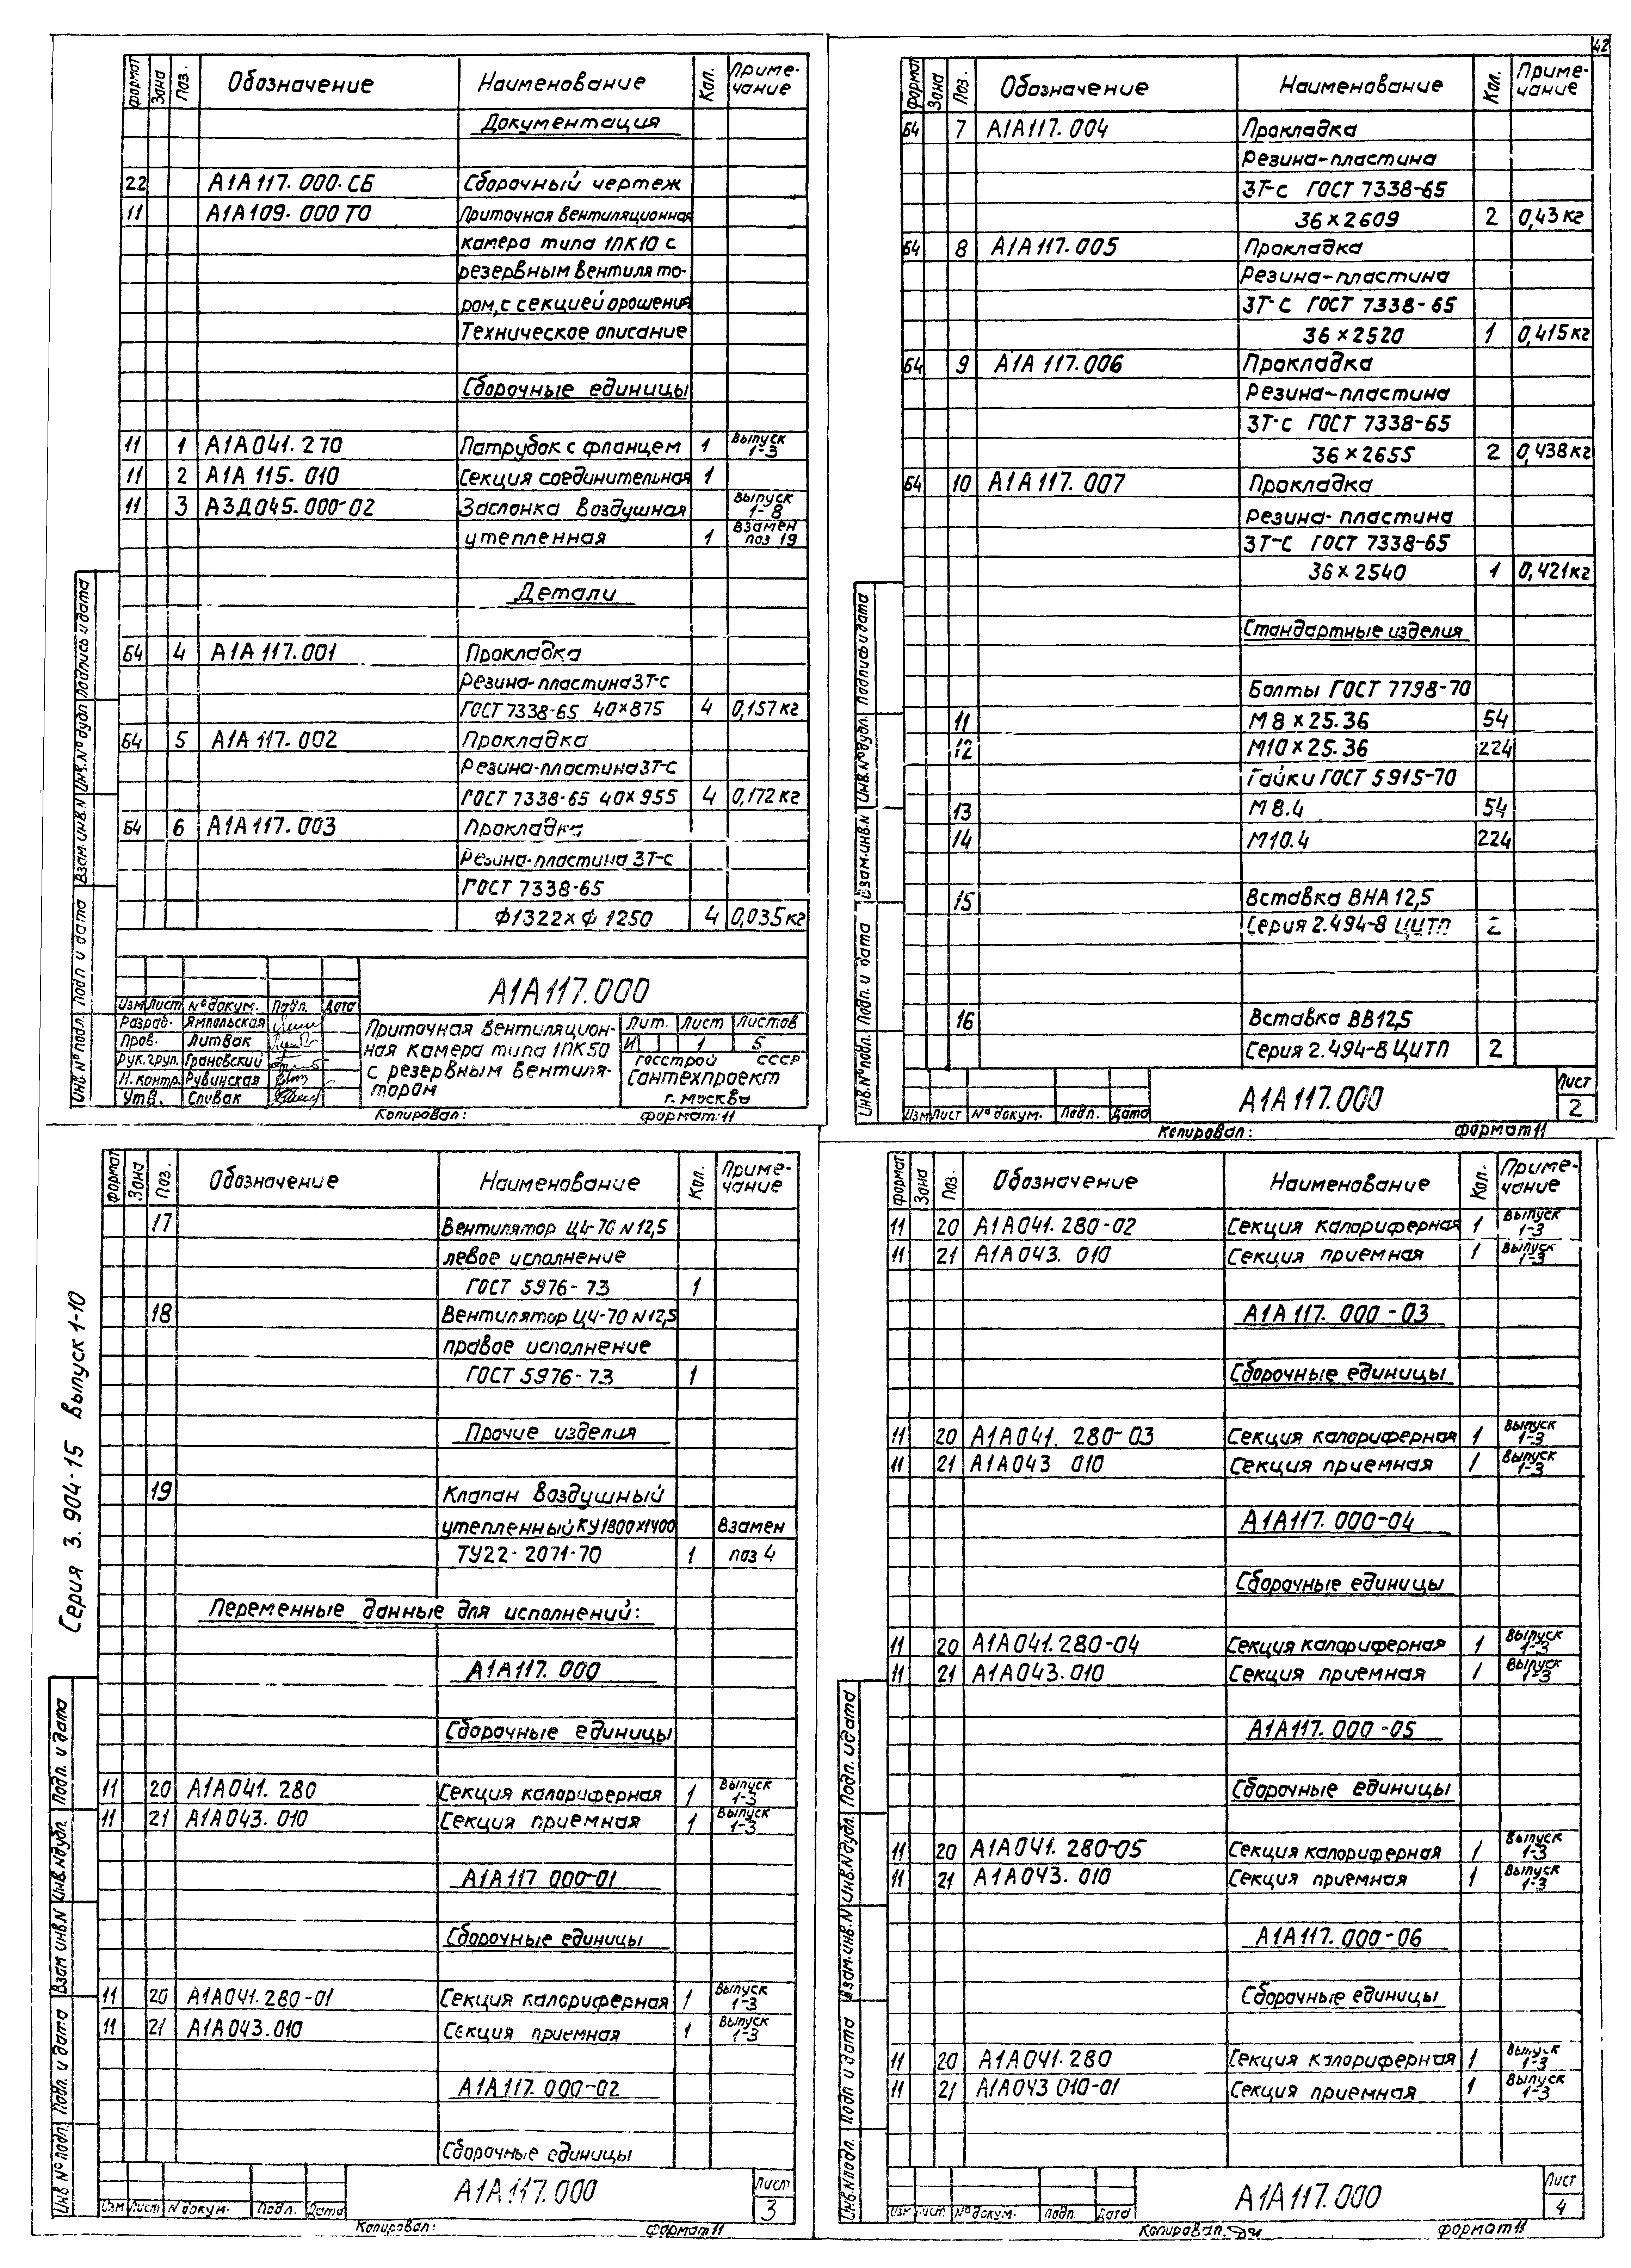 42
формат Зона Поз. Обозначение Наименование Кол. Приме-
чание
Документация
22 А1А117.000.СБ Сборочный чертеж
11 А1А109.000 ТО Приточная вентиляционная
камера типа 1ПК10 с
резервным вентилято-
ром, с секцией орошения
Техническое описание
Сборочные единицы
11 1 А1А041.270 Патрубок с фланцем 1 Выпуск
1-3
11 2 А1А 115.010 Секция соединительная 1
11 3 А3Д045.000-02 Заслонка воздушная Выпуск
1-8
утепленная 1 Взамен
поз 19
Детали
Б4 4 А1А 117.001 Прокладка
Резина-пластина 3Т-с
ГОСТ 7338-65 40×875 4 0,157 кг
Б4 5 А1А 117.002 Прокладка
Резина-пластина 3Т-с
ГОСТ 7338-65 40×955 4 0,172 кг
Б4 6 А1А117.003 Прокладка
Резина-пластина 3Т-с
ГОСТ 7338-65
Ф1322×Ф 1250 4 0,035 кг
А1А117.000
Изм Лист № докум. Подп. Дата
Разраб. Ямпольская
Пров. Литвак
Рук.груп. Грановский
Н.контр. Рувинская
Утв. Спивак
Приточная вентиляцион-
ная камера типа 1ПК50
с резервным вентиля-
тором
Лит. Лист Листов
И 1 5
Госстрой СССР
Сантехпроект
г. Москва
Копировал: формат: 11
Инв № подл. Подп и дата Взам.инв.N Инв.№ дубл Подпись и дата
формат Зона Поз. Обозначение Наименование Кол. Приме-
чание
Б4 7 А1А117.004 Прокладка
Резина-пластина
3Т-с ГОСТ 7338-65
36×2609 2 0,43 кг
Б4 8 А1А 117.005 Прокладка
Резина-пластина
3Т-с ГОСТ 7338-65
36×2520 1 0,415 кг
Б4 9 А1А 117.006 Прокладка
Резина-пластина
3Т-с ГОСТ 7338-65
36×2655 2 0,438 кг
Б4 10 А1А117.007 Прокладка
Резина-пластина
3Т-С ГОСТ 7338-65
36×2540 1 0,421 кг
Стандартные изделия
Болты ГОСТ 7798-70
11 М8×25.36 54
12 М10×25.36 224
Гайки ГОСТ 5915-70
13 М8.4 54
14 М10.4 224
15 Вставка ВНА 12,5
Серия 2.494-8 ЦИТП 2
16 Вставка ВВ12,5
Серия 2.494-8 ЦИТП 2
Изм Лист № докум. Подп. Дата А1А117.000 Лист
2
Копировал: формат 11
Инв.№ подл. Подп. и дата Взам.инв.N Инв.№ дубл. Подпись и дата
Серия 3.904-15 Выпуск 1-10
формат Зона Поз. Обозначение Наименование Кол. Приме-
чание
17 Вентилятор Ц4-70 N12,5
левое исполнение
ГОСТ 5976-73 1
18 Вентилятор Ц4-70 N12,5
правое исполнение
ГОСТ 5976-73 1
Прочие изделия
19 Клапан воздушный
утепленный КУ1800×1400 Взамен
ТУ22-2071-70 1 поз 4
Переменные данные для исполнений:
А1А117.000
Сборочные единицы
11 20 А1А041.280 Секция калориферная 1 Выпуск
1-3
11 21 А1А043.010 Секция приемная 1 Выпуск
1-3
А1А117 000-01
Сборочные единицы
11 20 А1А041.280-01 Секция калориферная 1 Выпуск
1-3
11 21 А1А043.010 Секция приемная 1 Выпуск
1-3
А1А117.000-02
Сборочные единицы
Изм Лист N докум. Подп. Дата А1А117.000 Лист
3
Копировал: формат 11
Инв № подл. Подп. и дата Взам инв.N Инв.N дубл. Подп. и дата
формат Зона Поз. Обозначение Наименование Кол. Приме-
чание
11 20 А1А041.280-02 Секция калориферная 1 Выпуск
1-3
11 21 А1А043.010 Секция приемная 1 Выпуск
1-3
А1А 117.000-03
Сборочные единицы
11 20 А1А041.280-03 Секция калориферная 1 Выпуск
1-3
11 21 А1А043 010 Секция приемная 1 Выпуск
1-3
А1А117.000-04
Сборочные единицы
11 20 А1А041.280-04 Секция калориферная 1 Выпуск
1-3
11 21 А1А043.010 Секция приемная 1 Выпуск
1-3
А1А117.000-05
Сборочные единицы
11 20 А1А041.280-05 Секция калориферная 1 Выпуск
1-3
11 21 А1А043.010 Секция приемная 1 Выпуск
1-3
А1А117.000-06
Сборочные единицы
11 20 А1А041.280 Секция калориферная 1 Выпуск
1-3
11 21 А1А043 010-01 Секция приемная 1 Выпуск
1-3
Изм Лист № докум. Подп. Дата А1А117.000 Лист
4
Копировал. формат 11
Инв.N подл. Подп и дата Взам.инв.N Инв.N дубл. Подп. и дата